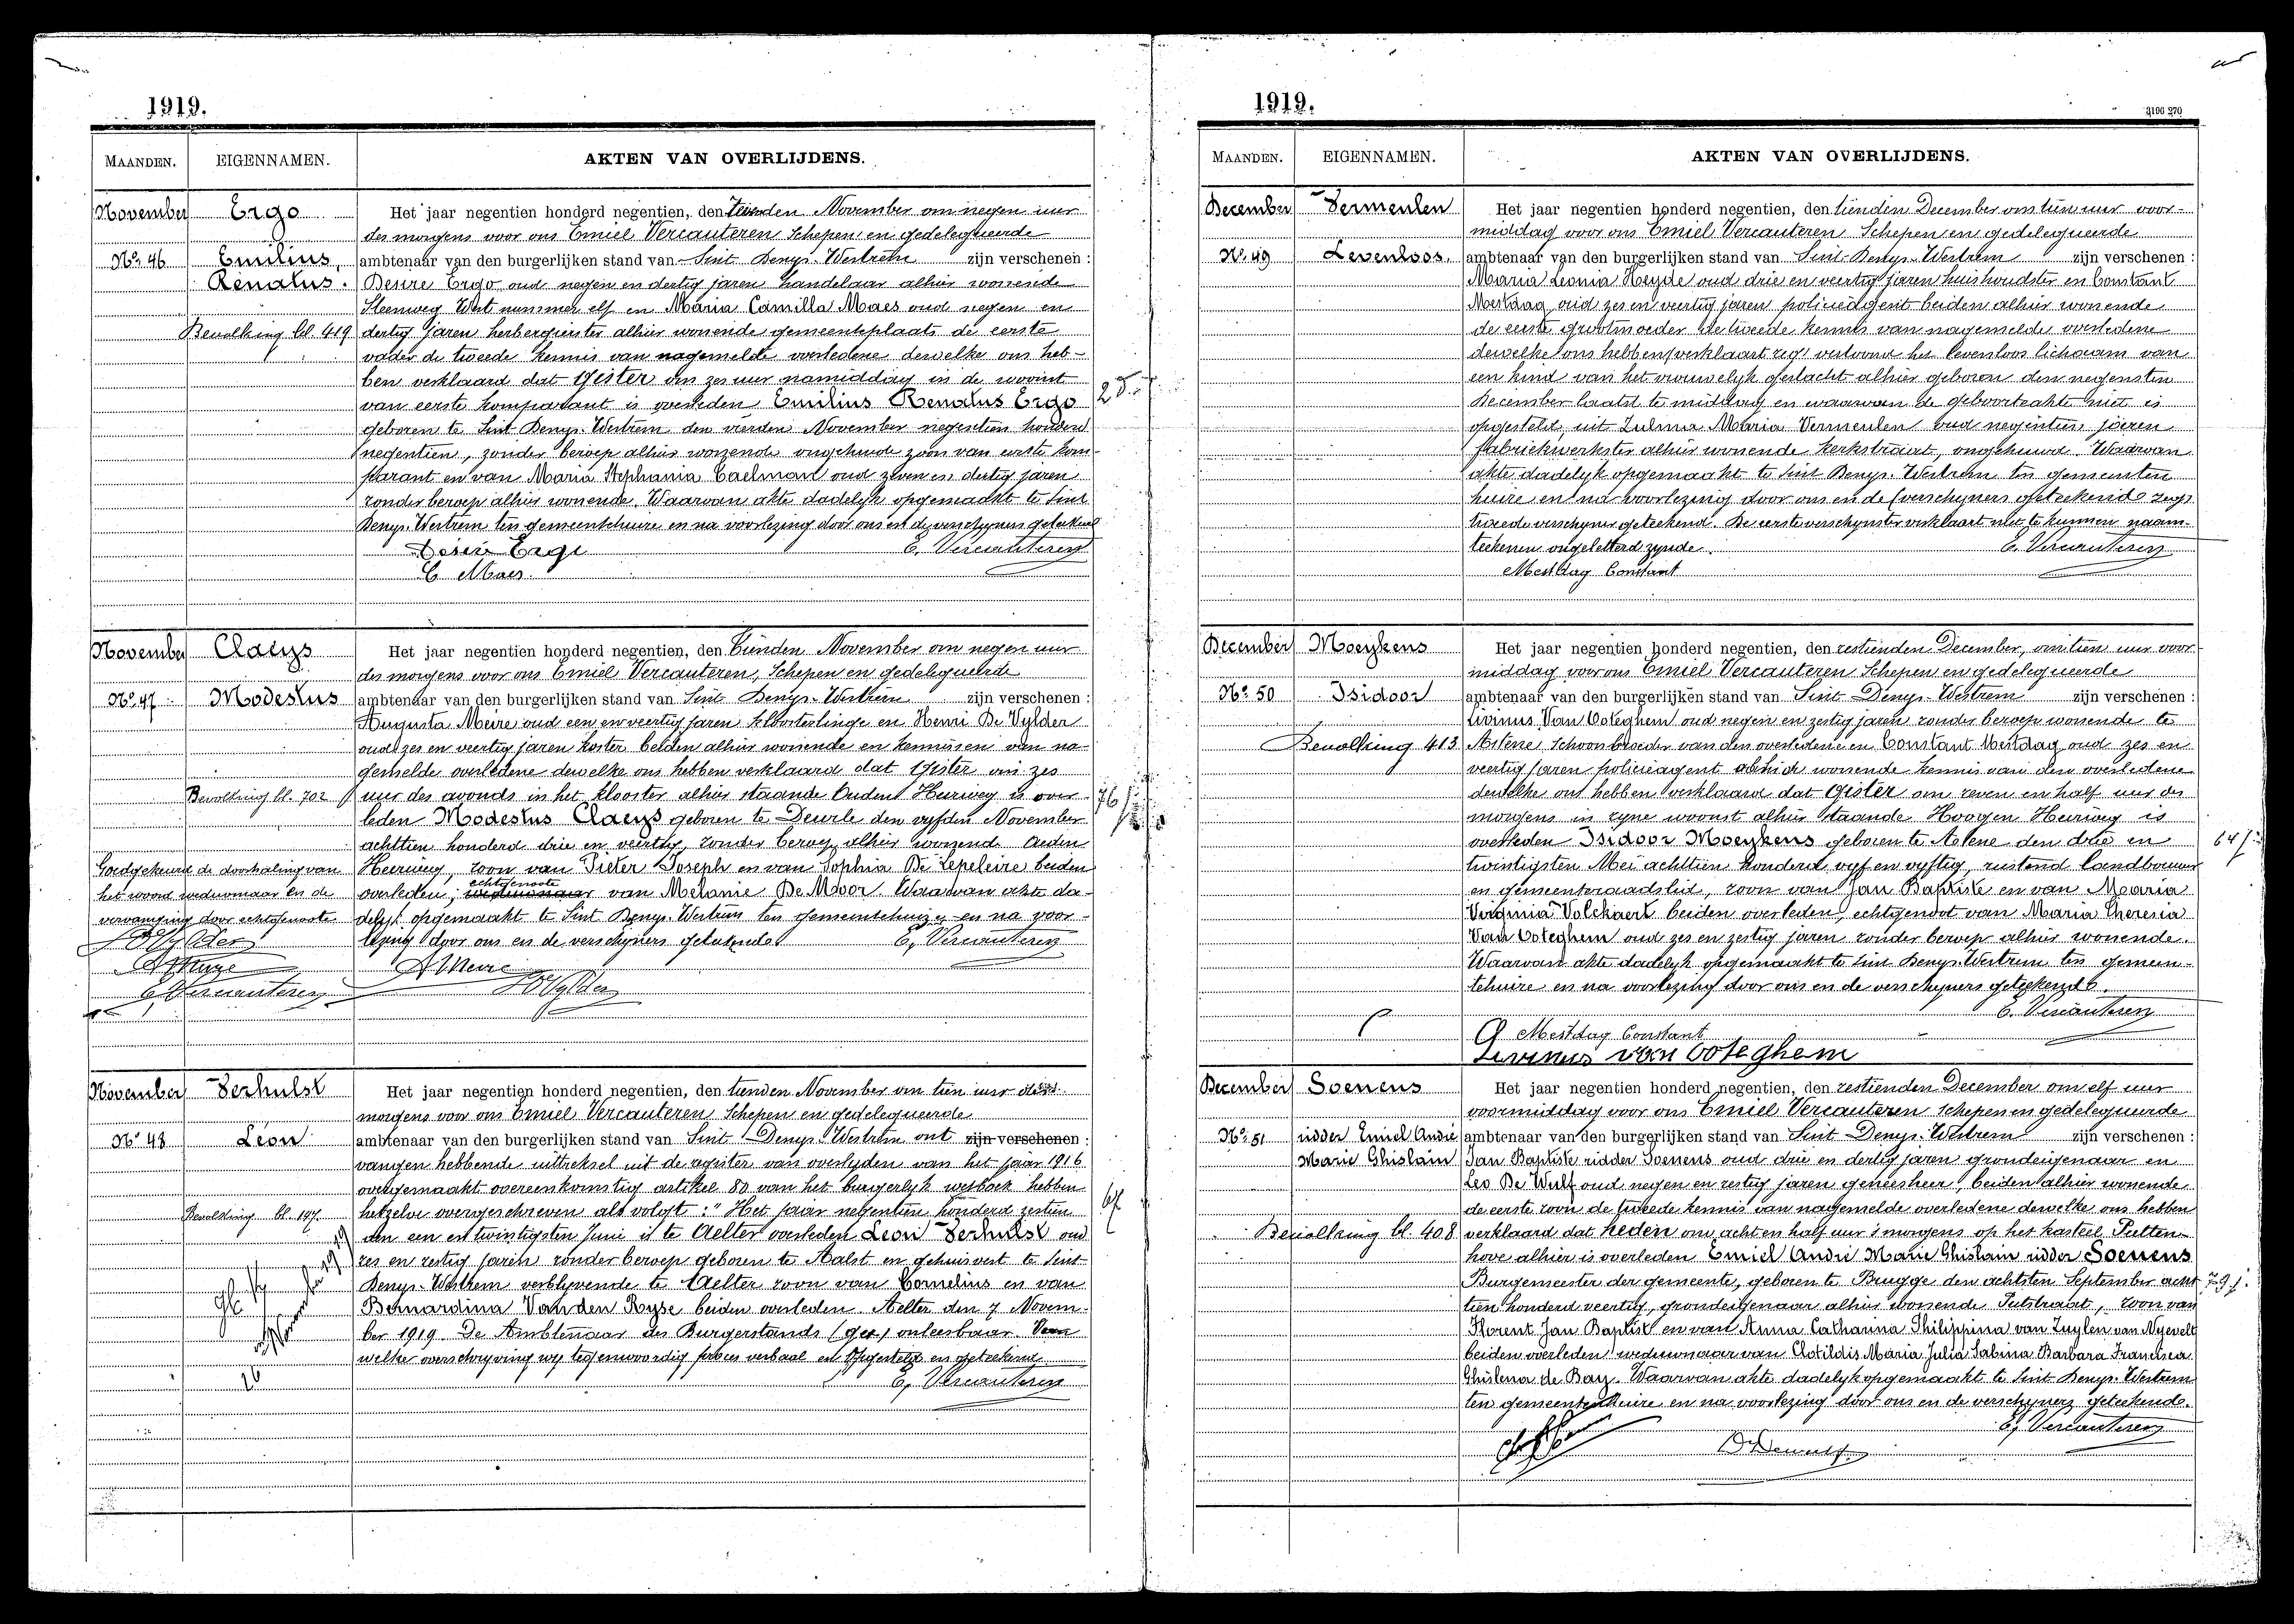 1919.
MAANDEN. EIGENNAMEN. AKTEN VAN OVERLIJDENS.
November Ergo Het jaar negentien honderd negentien, den tienden November om negen uur
des morgens voor ons Emiel Vercauteren Schepen en gedelegueerde
No. 46 Emilius, ambtenaar van den burgerlijken stand van Sint Denys-Westrem zijn verschenen :
Renatus. Desire Ergo oud negen en dertig jaren handelaar alhier wonende
Steenweg West nummer elf en Maria Camilla Maes oud negen en
Bevolking bl. 419 dertig jaren herbergierster alhier wonende gemeenteplaats de eerste
vader de tweede kennis van nagemelde overledene dewelke ons heb-
ben verklaard dat gister om zes uur namiddag in de woonst
van eerste komparant is overleden Emilius Renatus Ergo
geboren te Sint Denys-Westrem den vierden November negentien honderd
negentien, zonder beroep alhier wonende ongehuwde zoon van eerste kom-
parant en van Maria Stephania Caelman oud zeven en dertig jaren
zonder beroep alhier wonende. Waarvan akte dadelyk opgemaakt te Sint
Denys-Westrem ten gemeentehuize en na voorlezing door ons en de verschyners geteekend
Desiré Ergo E. Vercauteren
C Maes
November Claeys Het jaar negentien honderd negentien, den tienden November om negen uur
des morgens voor ons Emiel Vercauteren, Schepen en gedelegueerde
No. 47 Modestus ambtenaar van den burgerlijken stand van Sint Denys-Westrem zijn verschenen :
Augusta Meire oud een en veertig jaren kloosterlinge en Henri De Vylder
oud zes en veertig jaren koster beiden alhier wonende en kennissen van na-
gemelde overledene dewelke ons hebben verklaard dat gister om zes
Bevolking bl. 702 uur des avonds in het klooster alhier staande Ouden Heirweg is over-
76 j
leden Modestus Claeys geboren te Deurle den vyfden November
achttien honderd drie en veertig, zonder beroep alhier wonende Ouden
Goedgekeurd de doorhaling van Heerweg, zoon van Pieter Joseph en van Sophia De Lepeleire beiden
het woord weduwnaar en de overleden, echtgenoote weduwnaar van Melanie De Moor Waarvan akte da-
vervanging door echtgenoote delyk opgemaakt te Sint Denys-Westrem ten gemeentehuize en na voor-
DeVylder lezing door ons en de verschyners geteekend E. Vercauteren
A Meire A Meire
E Vercauteren DeVylder
November Verhulst Het jaar negentien honderd negentien, den tienden November om tien uur des
morgens voor ons Emiel Vercauteren Schepen en gedelegueerde
No. 48 Léon ambtenaar van den burgerlijken stand van Sint Denys-Westrem ont zijn verschenen :
vangen hebbende uittreksel uit de register van overlyden van het jaar 1916
overgemaakt overeenkomstig artikel 80 van het burgerlyk wetboek hebben
Bevolking bl. 197 hetzelve overgeschreven als volgt: "Het jaar negentien honderd zestien
67
den een en twintigsten Juni is te Aelter overleden Leon Verhulst oud
zes en zestig jaren zonder beroep geboren te Aalst en gehuisvest te Sint-
Denys-Westrem verblyvende te Aelter zoon van Cornelius en van
Bernardina Vanden Ryse beiden overleden. Aelter den 7 Novem-
ber 1919 De Ambtenaar des Burgerstands (get.) onleesbaar Van
welke overschryving wy tegenwoordig proces verbaal en opgesteld en geteekend
E. Vercauteren
1919.
3106 270
MAANDEN. EIGENNAMEN. AKTEN VAN OVERLIJDENS.
December Vermeulen Het jaar negentien honderd negentien, den tienden December om tien uur voor-
middag voor ons Emiel Vercauteren Schepen en gedelegueerde
No. 49 Levenloos. ambtenaar van den burgerlijken stand van Sint-Denys-Westrem zijn verschenen :
Maria Leonia Heyde oud drie en veertig jaren huishoudster en Constant
Mestdag oud zes en veertig jaren policieagent beiden alhier wonende
de eerste grootmoeder de tweede kennis van nagemelde overledene
dewelke ons hebben verklaart zegt vertoond het levenloos lichaam van
een kind van het vrouwelyk geslacht alhier geboren den negensten
December laatst te middag en waarvan de geboorteakte niet is
opgesteld, uit Zulma Maria Vermeulen oud negentien jaren
fabriekwerkster alhier wonende Kerkstraat, ongehuwd. Waarvan
akte dadelyk opgemaakt te Sint Denys-Westrem ten gemeenten
huize en na voorlezing door ons en de verschyners geteekend zegt
tweede verschyner geteekend. De eerste verschynster verklaart niet te kunnen naam-
teekenen ongeletterd zynde. E. Vercauteren
Mestdag Constant
December Moeykens Het jaar negentien honderd negentien, den zestienden December, om tien uur voor-
middag voor ons Emiel Vercauteren Schepen en gedelegueerde
No. 50 Isidoor ambtenaar van den burgerlijken stand van Sint-Denys-Westrem zijn verschenen :
Livinus Van Ooteghem oud negen en zestig jaren zonder beroep wonende te
Bevolking 413 Astene, schoonbroeder van den overledene en Constant Mestdag oud zes en
veertig jaren policieagent alhier wonende kennis van den overledene
dewelke ons hebben verklaard dat gister om zeven en half uur des
morgens in zyne woonst alhier staande Hoogen Heirweg is
overleden Isidoor Moeykens geboren te Astene den drie en
64 j.
twintigsten Mei achttien honderd vyf en vyftig, rustend landbouwer
en gemeenteraadslid, zoon van Jan Baptiste en van Maria
Virginia Volckaert beiden overleden, echtgenoot van Maria Theresia
Van Ooteghem oud zes en zestig jaren zonder beroep alhier wonende.
Waarvan akte dadelyk opgemaakt te Sint Denys-Westrem ten gemeen-
tehuize en na voorlezing door ons en de verschyners geteekend.
E. Vercauteren
Mestdag Constant
Livinus van Ooteghem
December Soenens Het jaar negentien honderd negentien, den zestienden December om elf uur
voormiddag voor ons Emiel Vercauteren Schepen en gedelegueerde
No. 51 ridder Emiel André ambtenaar van den burgerlijken stand van Sint-Denys-Westrem zijn verschenen :
Marie Ghislain Jan Baptiste ridder Soenens oud drie en dertig jaren grondeigenaar en
Leo De Wulf oud negen en zestig jaren geneesheer, beiden alhier wonende
de eerste zoon de tweede kennis van nagemelde overledene dewelke ons hebben
Bevolking bl. 408 verklaard dat heden om acht en half uur 's morgens op het kasteel Putten-
hove alhier is overleden Emiel André Marie Ghislain ridder Soenens
Burgemeester der gemeente, geboren te Brugge den achtsten September acht
79 j.
tien honderd veertig, grondeigenaar alhier wonende Putstraat, zoon van
Florent Jan Baptist en van Anna Catharina Philippina van Zuylen van Nyevelt
beiden overleden weduwnaar van Clotildis Maria Julia Sabina Barbara Francisca
Ghislena de Bay. Waarvan akte dadelyk opgemaakt te Sint Denys-Westrem
ten gemeentehuize en na voorlezing door ons en de verschyners geteekend.
E. Vercauteren
Dr Dewulf